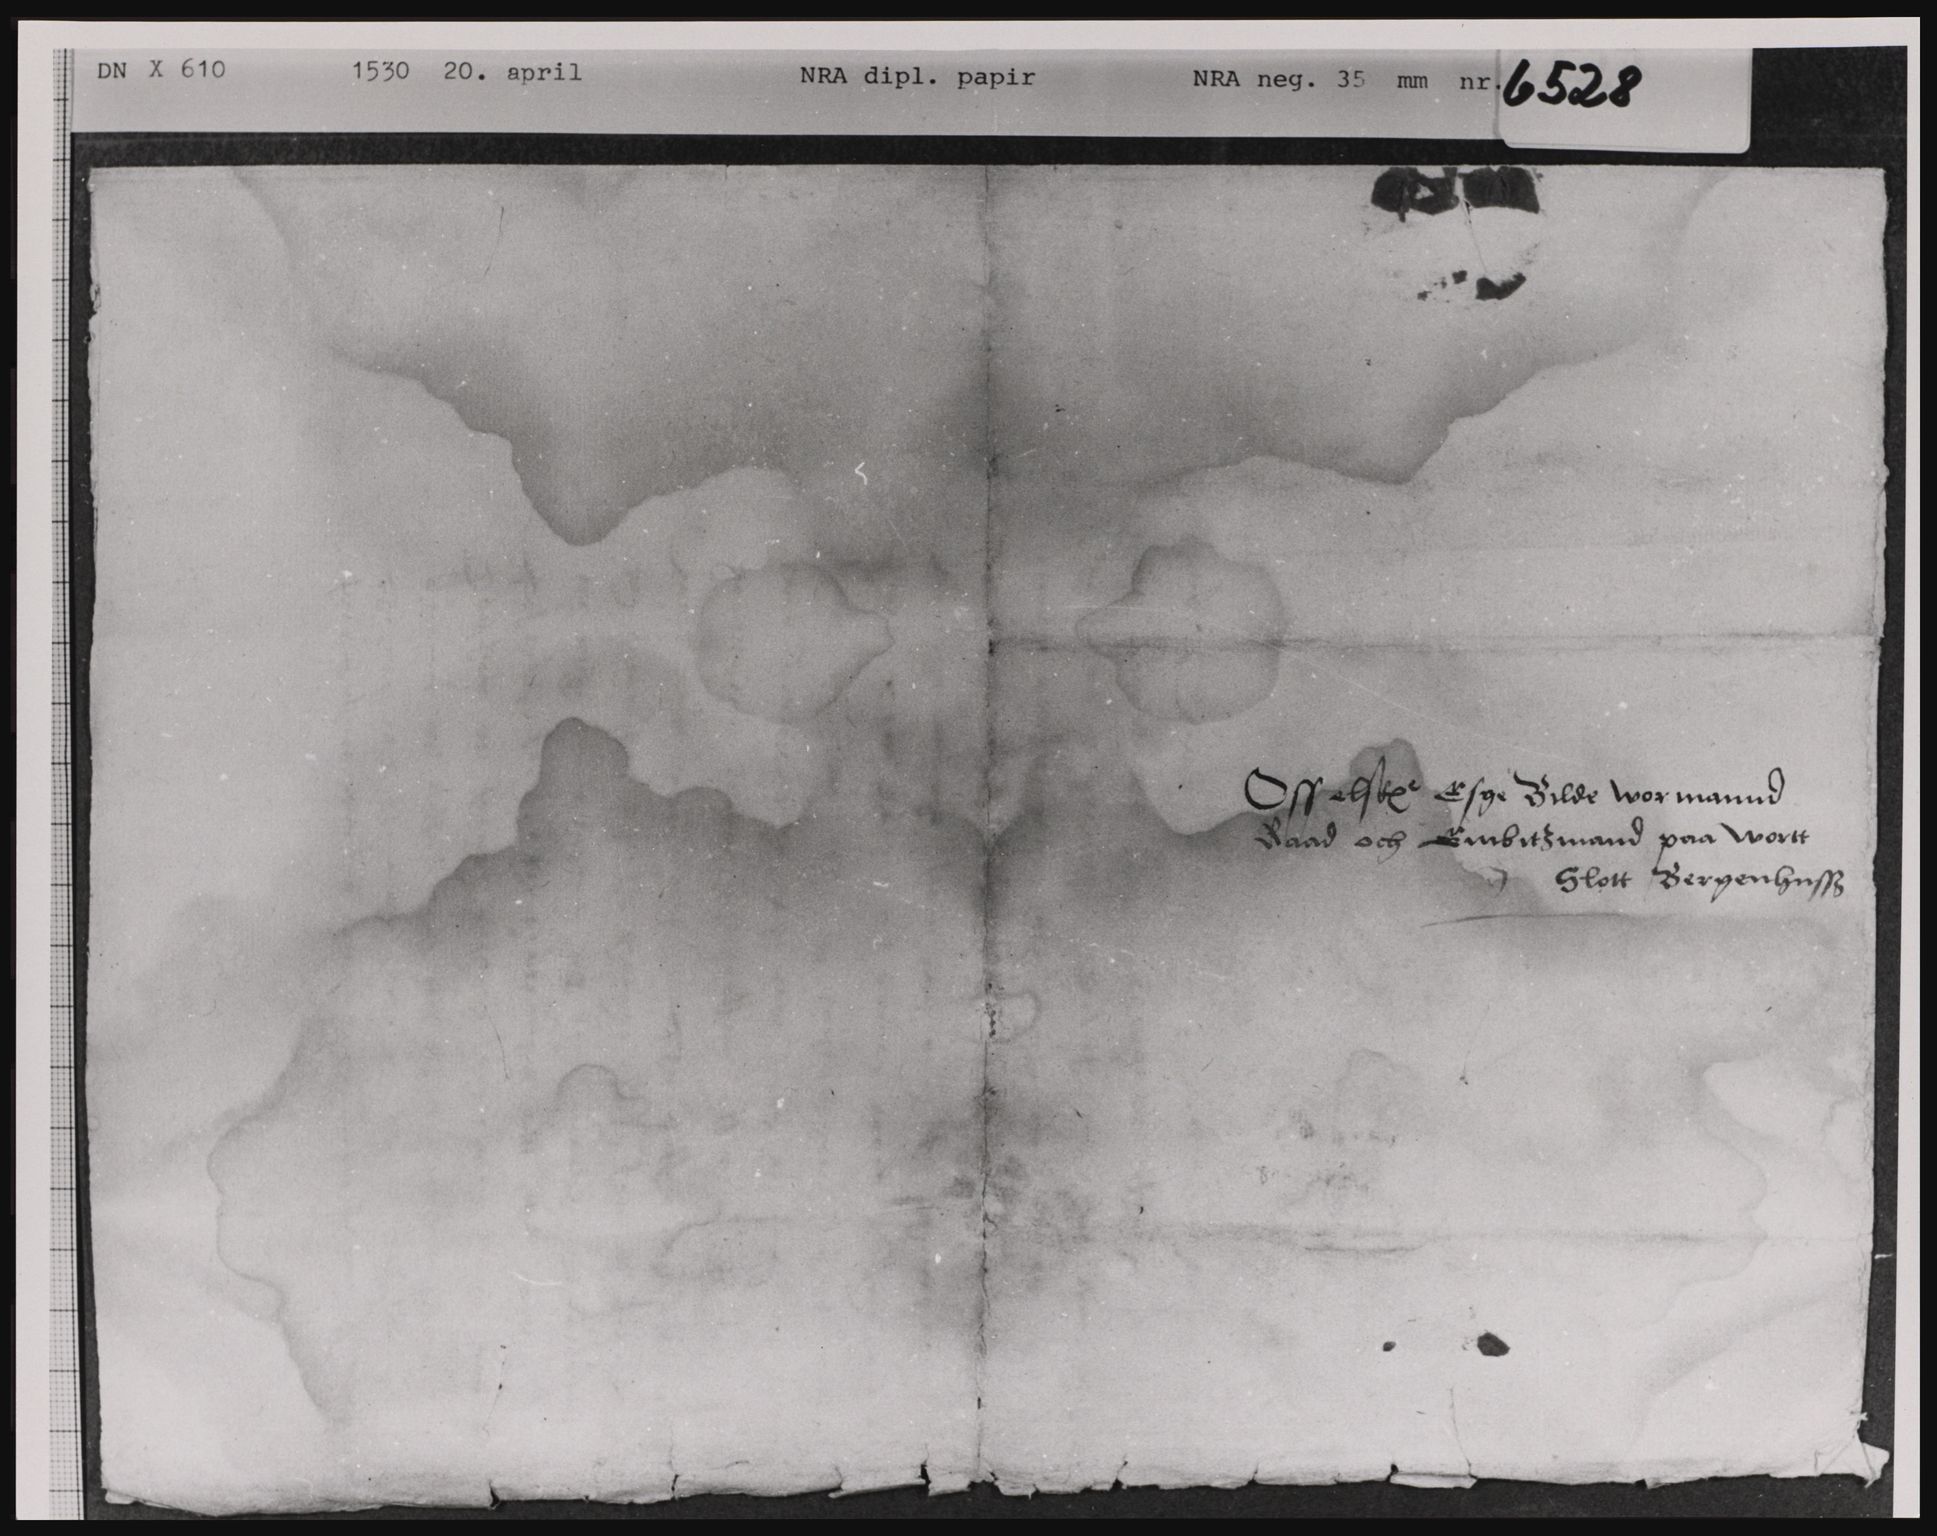 DN X 610 1530 20. april NRA dipl. papir NRA neg. 35 mm nr. 6528
Oss elskͤ Esge Bilde wor mannd
Raad och Embitzmand paa wortt
Slott Bergenhuss